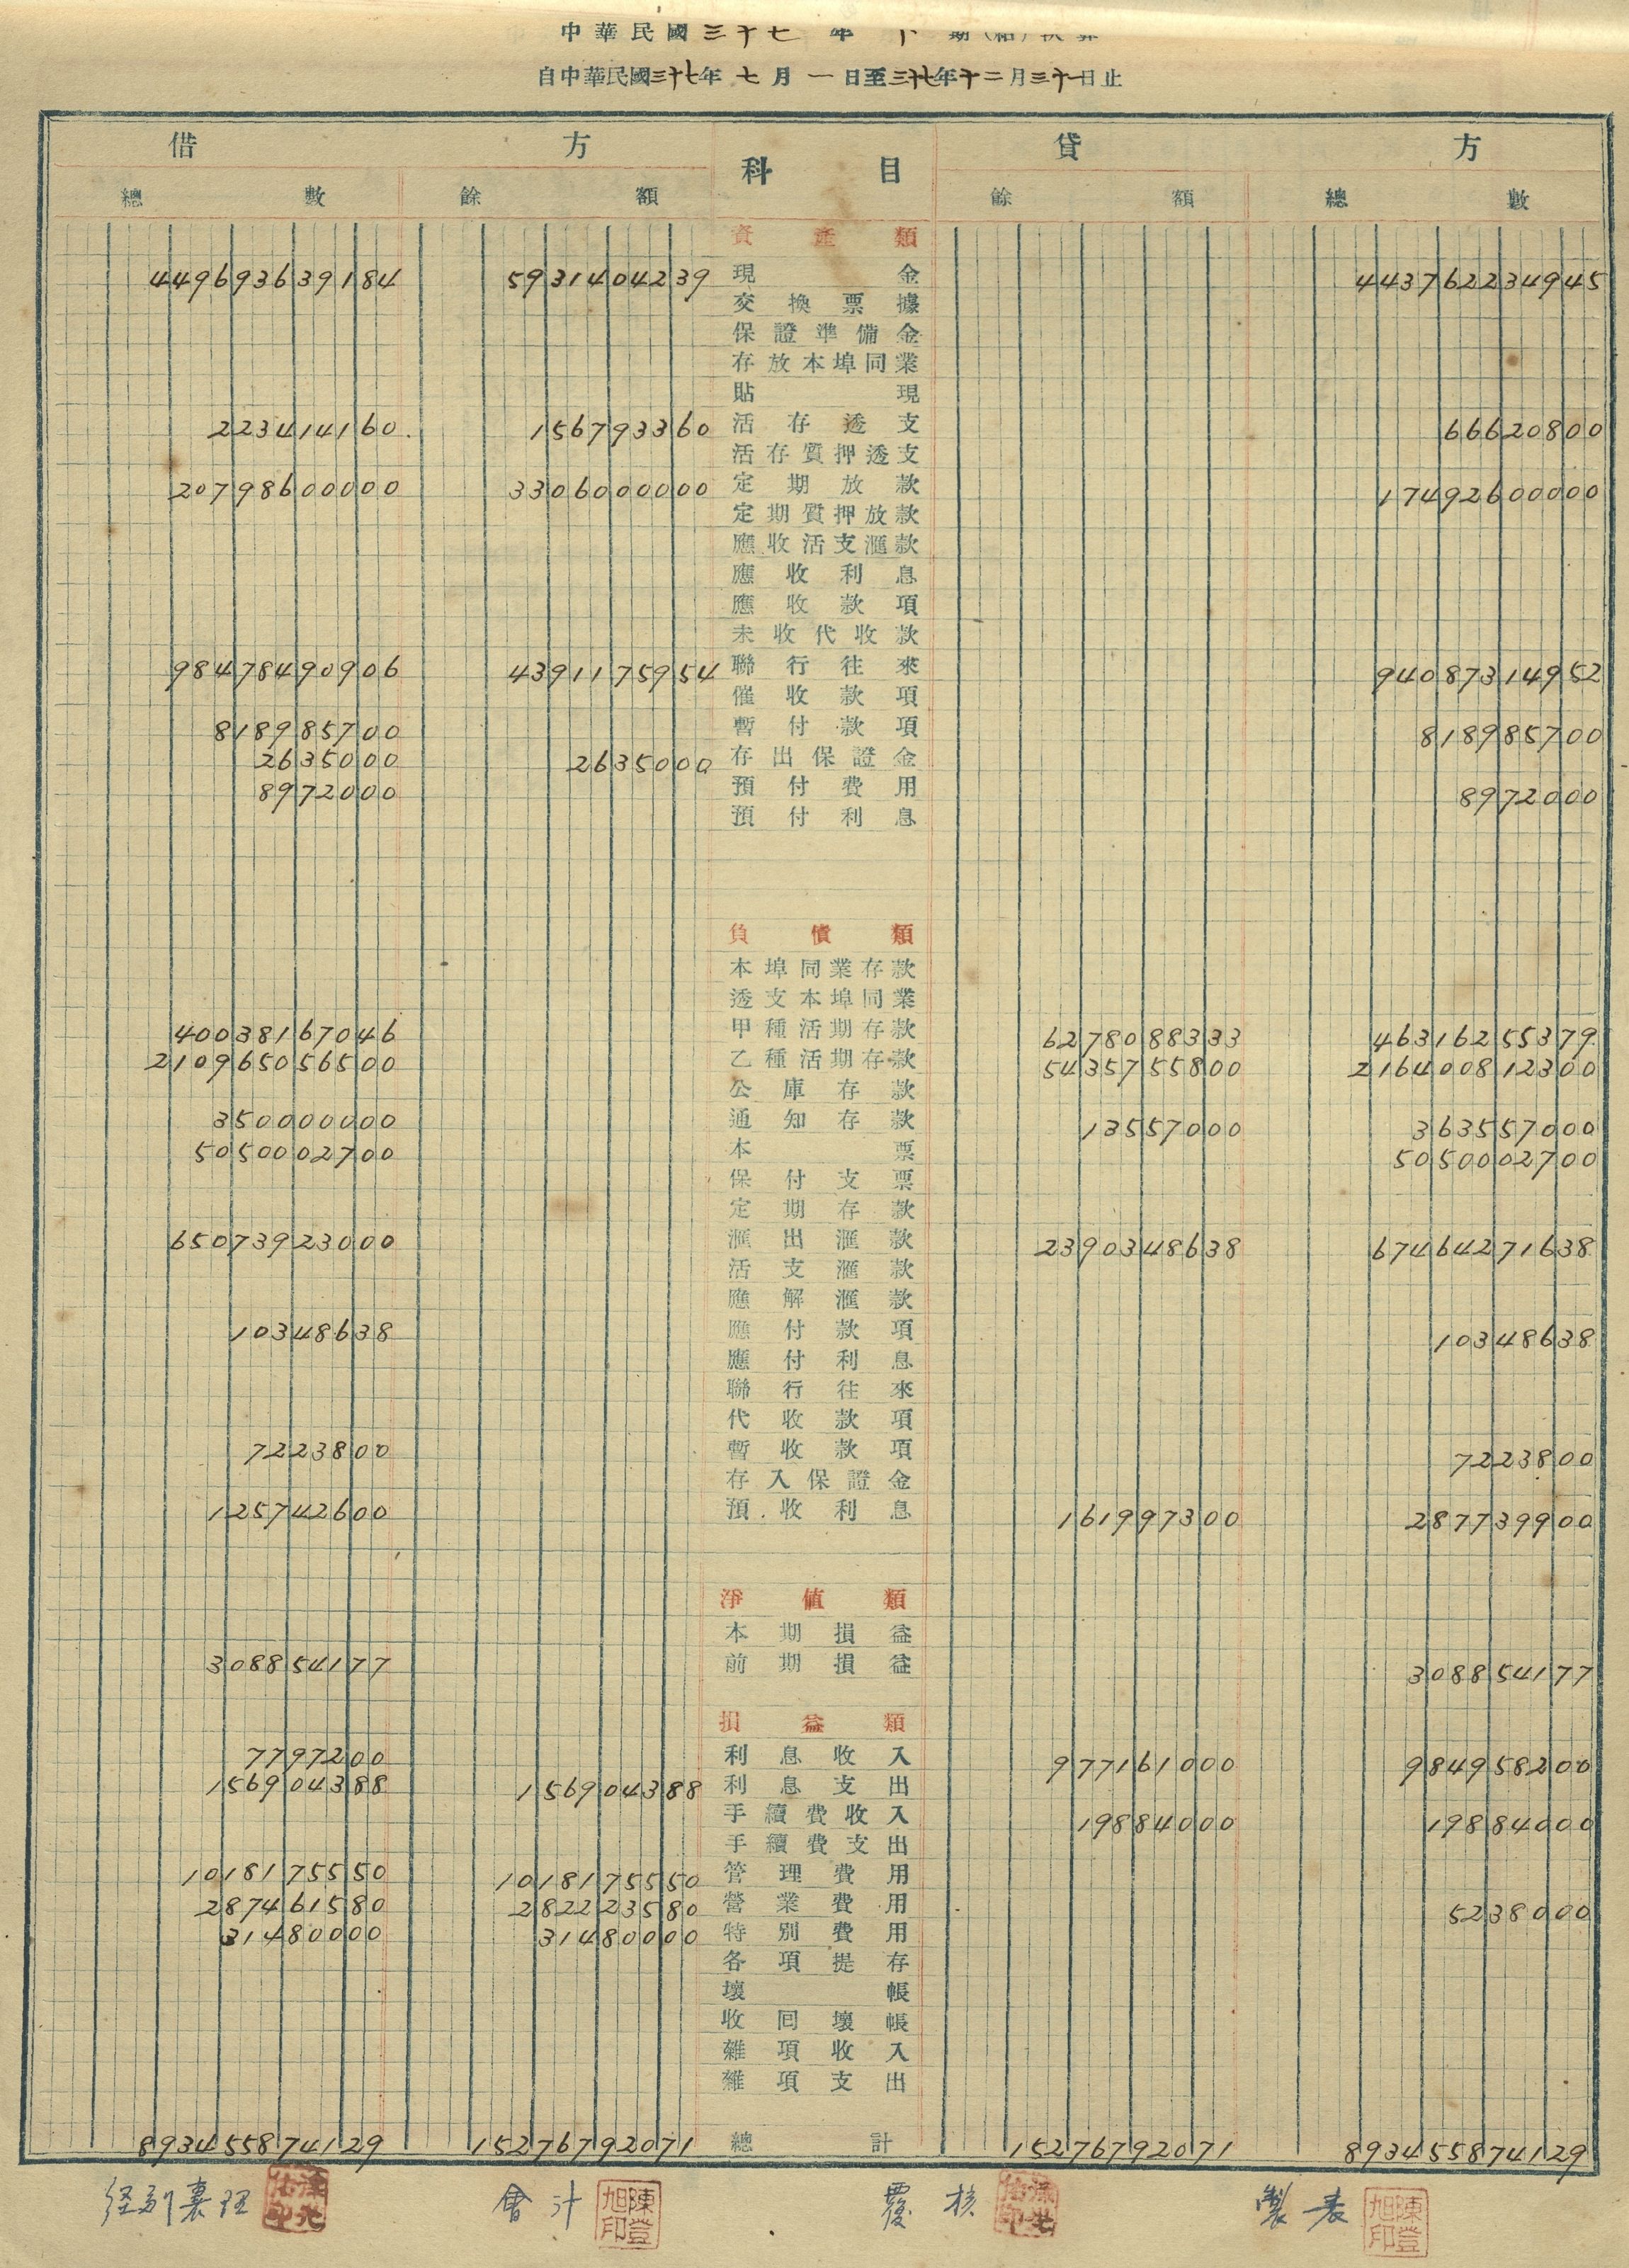 中華民國三十七年下期(結)決算
自中華民國三十七年七月一日至三十七年十二月三十一日止
借方 科目 貸方
總數 餘額 餘額 總數
資產類
449693639184 5931404239 現金 443762234945
交換票據
保證準備金
存放本埠同業
貼現
223414160 156793360 活存透支 66620800
活存質押透支
20798600000 3306000000 定期放款 17492600000
定期質押放款
應收活支滙款
應收利息
應收款項
未收代收款
98478490906 4391175954 聯行往來 94087314952
催收款項
818985700 暫付款項 818985700
2635000 2635000 存出保證金
8972000 預付費用 8972000
預付利息
負債類
本埠同業存款
透支本埠同業
40038167046 甲種活期存款 6278088333 46316255379
210965056500 乙種活期存款 5435755800 216400812300
公庫存款
350000000 通知存款 13557000 363557000
5050002700 本票 5050002700
保付支票
定期存款
65073923000 滙出滙款 2390348638 67464271638
活支滙款
應解滙款
10348638 應付款項 10348638
應付利息
聯行往來
代收款項
7223800 暫收款項 7223800
存入保證金
125742600 預收利息 161997300 287739900
淨值類
本期損益
308854177 前期損益 308854177
損益類
7797200 利息收入 977161000 984958200
156904388 156904388 利息支出
手續費收入 19884000 19884000
手續費支出
1018175550 1018175550 管理費用
287461580 282223580 營業費用 5238000
31480000 31480000 特別費用
各項提存
壞帳
收回壞帳
雜項收入
雜項支出
893455874129 15276792071 總計 15276792071 893455874129
経副襄理 會計 陳登旭印 覆核 製表 陳登旭印